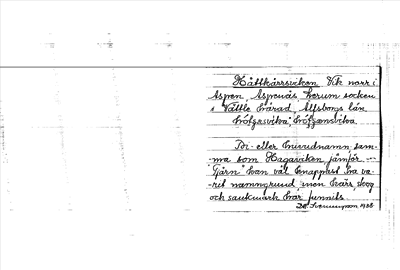 Håttkärrsviken. Vik norr i
Aspen, Aspenäs, Lerum socken
i Vättle härad, Älfsborgs län.

Bi- eller huvudnamn, sam-
ma som Hagaviken jämför
"Tjärn" kan väl knappast ha va-
rit namngrund, men kärr, skog
och sankmark har funnits
1938